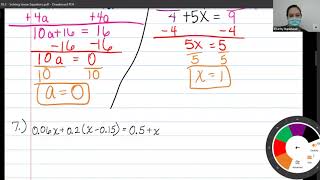 +4a +4a
10a+16 = 16
-16 -16
10a = 0
10 10
a = 0
4 +5x = 9
-4 -4
5x = 5
5 5
x = 1
7.) 0.06x+0.2(x-0.15) = 0.5+x